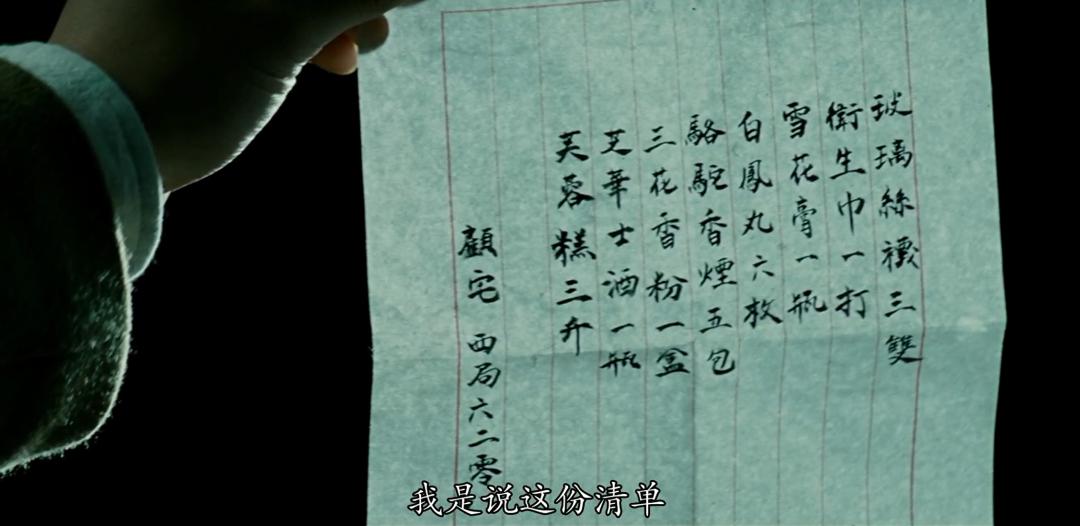 玻璃絲襪三雙
衛生巾一打
雪花膏一瓶
白鳳丸六枚
駱駝香煙五包
三花香粉一盒
芝華士酒一瓶
芙蓉糕三斤
顧宅 西局六二零
我是说这份清单